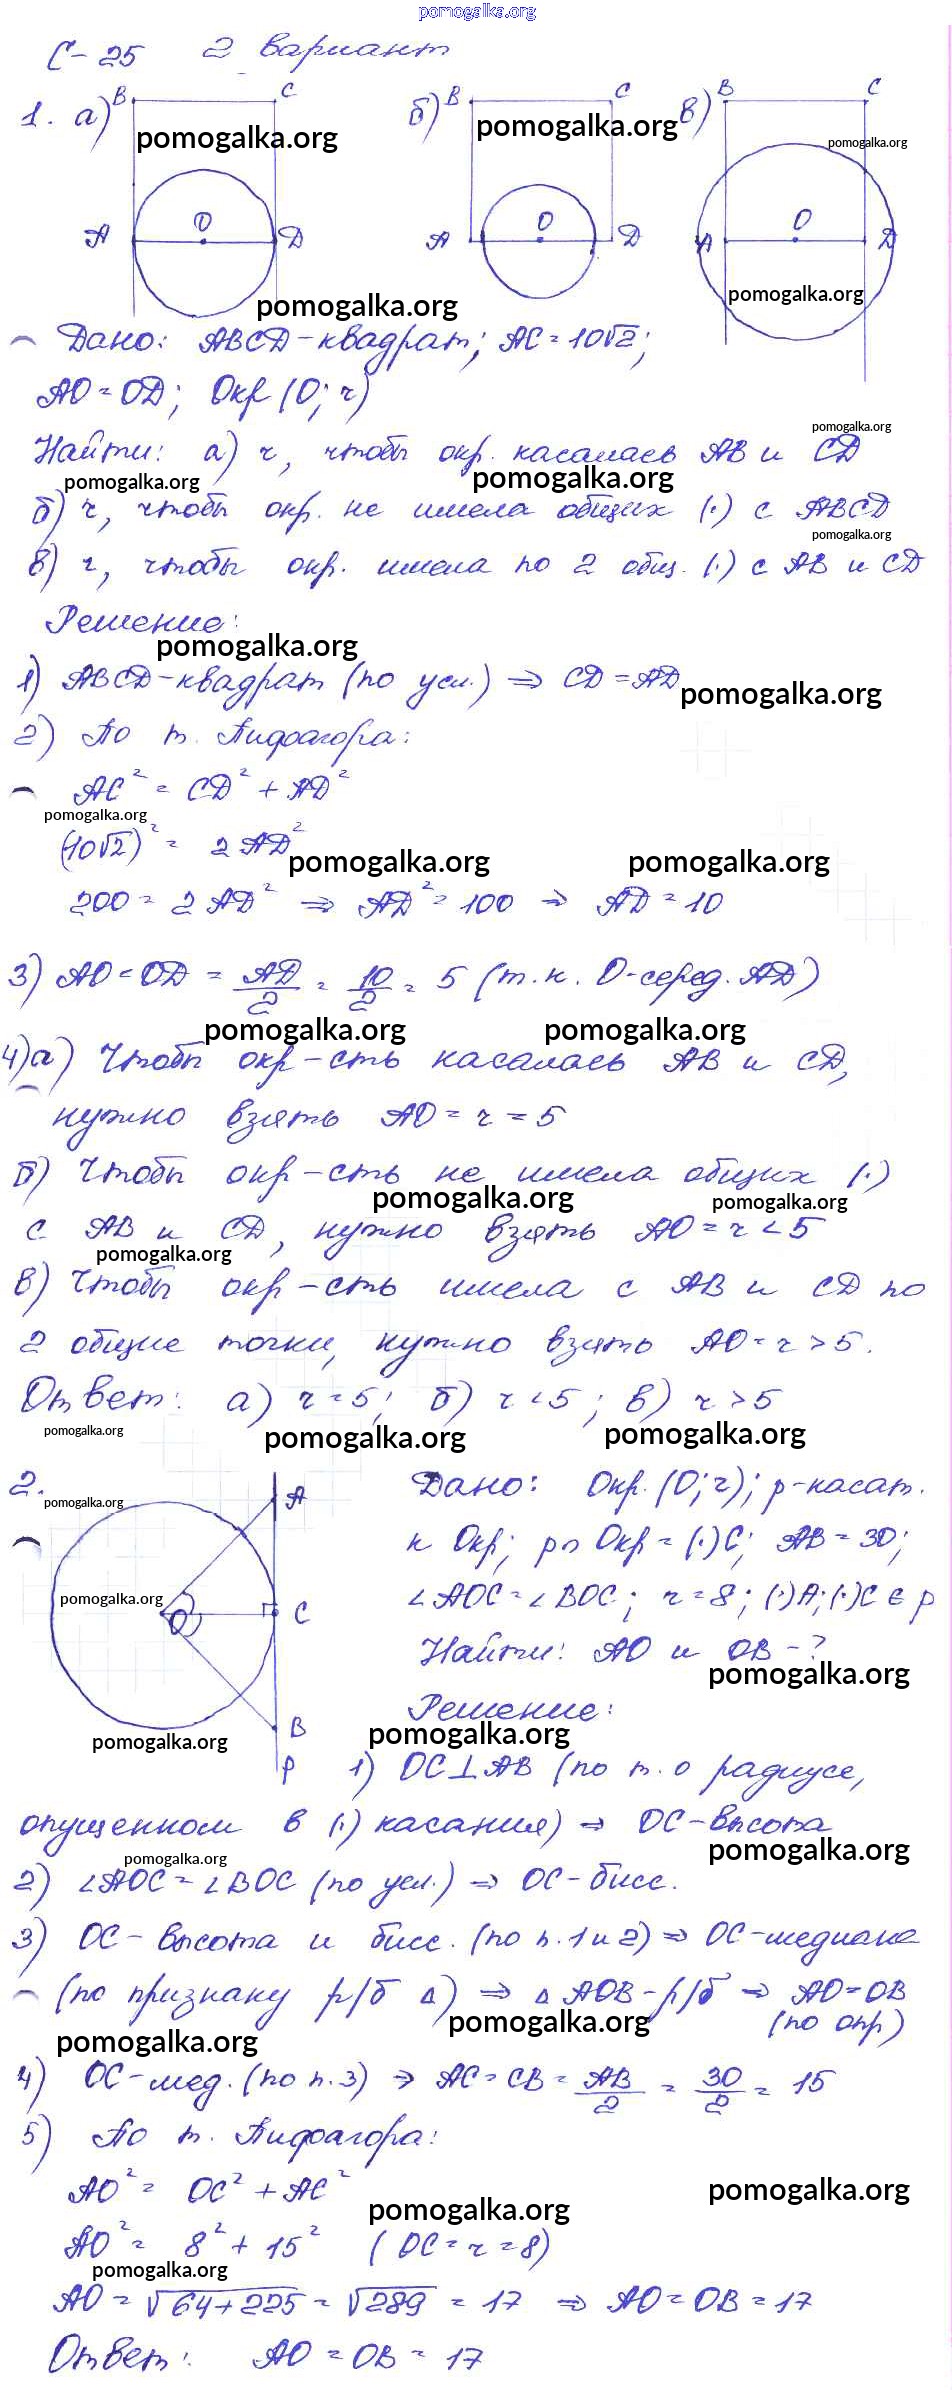 pomogalka.org
С-25 2 вариант
1. а) B C б) B C в) B C
pomogalka.org pomogalka.org pomogalka.org
A O D A O D A O D
pomogalka.org pomogalka.org
Дано: ABCD-квадрат; AC = 10√2;
AO = OD; Окр (O; r)
pomogalka.org
Найти: а) r, чтобы окр. касалась AB и CD
pomogalka.org pomogalka.org
б) r, чтобы окр. не имела общих (·) с ABCD
pomogalka.org
в) r, чтобы окр. имела по 2 общ. (·) с AB и CD
Решение:
pomogalka.org
1) ABCD-квадрат (по усл.) ⇒ CD = AD
pomogalka.org
2) По т. Пифагора:
AC² = CD² + AD²
pomogalka.org
(10√2)² = 2AD²
pomogalka.org pomogalka.org
200 = 2AD² ⇒ AD² = 100 ⇒ AD = 10
3) AO = OD = AD/2 = 10/2 = 5 (т.к. O-серед. AD)
pomogalka.org pomogalka.org
4) а) Чтобы окр-сть касалась AB и CD,
нужно взять AO = r = 5
б) Чтобы окр-сть не имела общих (·)
pomogalka.org pomogalka.org
с AB и CD, нужно взять AO = r < 5
pomogalka.org
в) Чтобы окр-сть имела с AB и CD по
2 общие точки, нужно взять AO = r > 5.
Ответ: а) r = 5; б) r < 5; в) r > 5
pomogalka.org pomogalka.org pomogalka.org
2.
pomogalka.org
A
pomogalka.org
O C
B
pomogalka.org
p
Дано: Окр. (O; r); p-касат.
к Окр; p∩Окр = (·)C; AB = 30;
∠AOC = ∠BOC; r = 8; (·)A; (·)C ∈ p
Найти: AO и OB - ?
pomogalka.org
Решение:
pomogalka.org
1) OC⊥AB (по т. о радиусе,
опущенном в (·) касания) ⇒ OC-высота
pomogalka.org pomogalka.org
2) ∠AOC = ∠BOC (по усл.) ⇒ OC-бисс.
3) OC-высота и бисс. (по п. 1 и 2) ⇒ OC-медиана
(по признаку р/б Δ) ⇒ Δ AOB-р/б ⇒ AO = OB
(по опр)
pomogalka.org pomogalka.org
4) OC-мед. (по п. 3) ⇒ AC = CB = AB/2 = 30/2 = 15
5) По т. Пифагора:
AO² = OC² + AC²
pomogalka.org pomogalka.org
AO² = 8² + 15² (OC = r = 8)
pomogalka.org
AO = √64+225 = √289 = 17 ⇒ AO = OB = 17
Ответ: AO = OB = 17